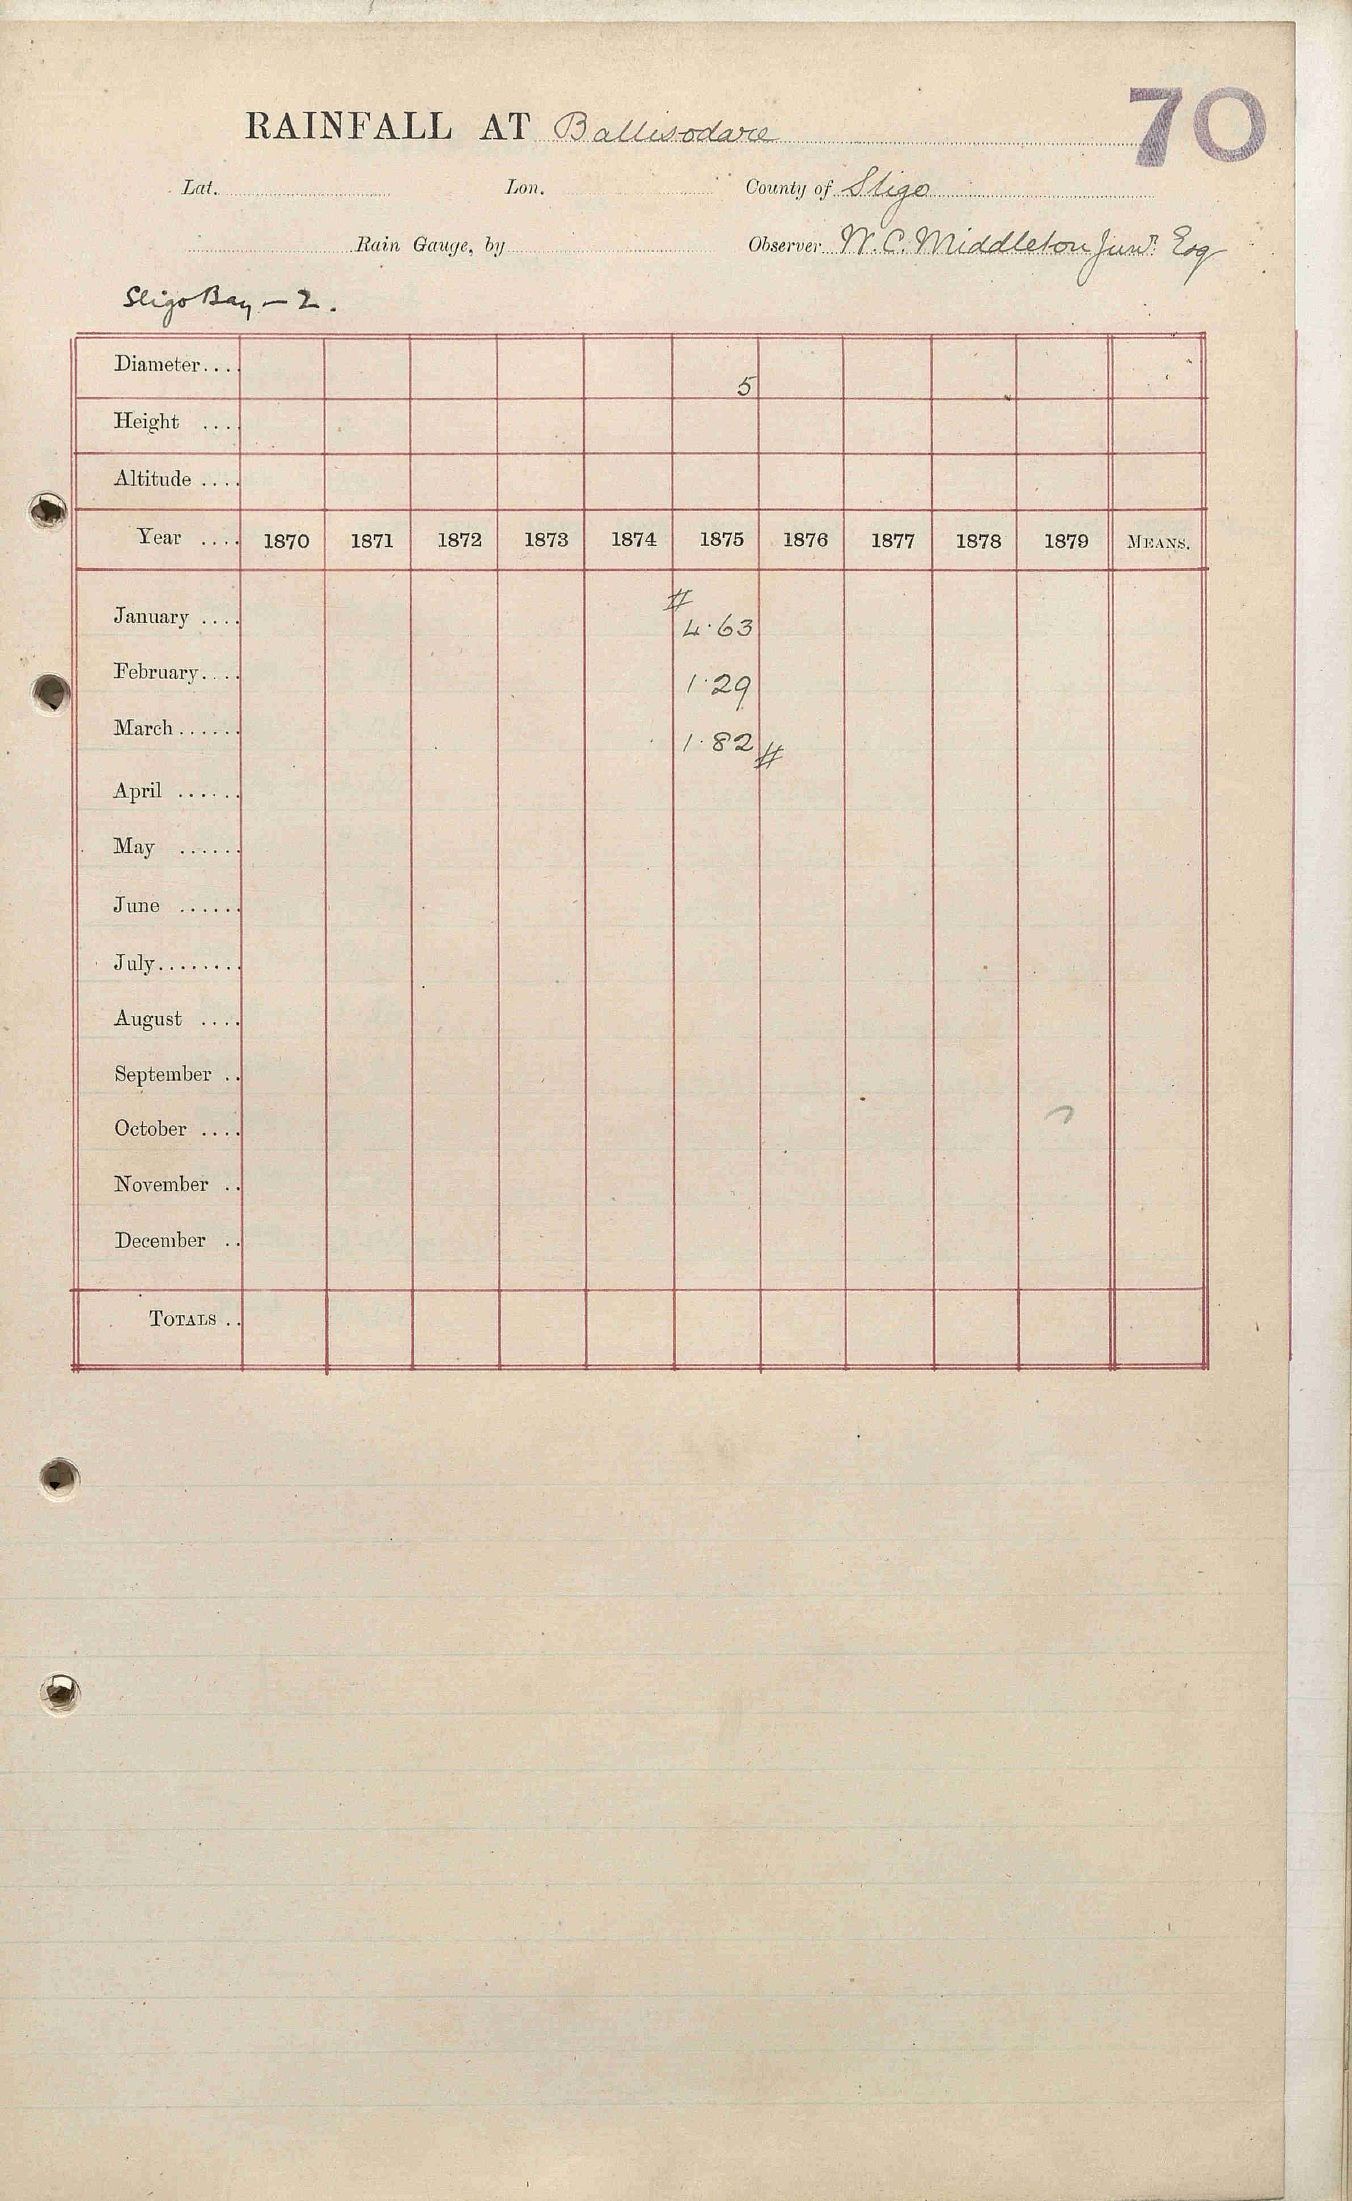 70
RAINFALL AT Ballisodare
Lat. Lon. County of Sligo
Rain Gauge, by Observer W. C. Middleton Junr. Esq
Sligo Bay — 2.
Diameter.... 5
Height ....
Altitude ....
Year .... 1870 1871 1872 1873 1874 1875 1876 1877 1878 1879 MEANS.
#
January .... 4.63
February.... 1.29
March ...... 1.82 #
April ......
May ......
June ......
July........
August ....
September ..
October ....
November ..
December ..
TOTALS ..